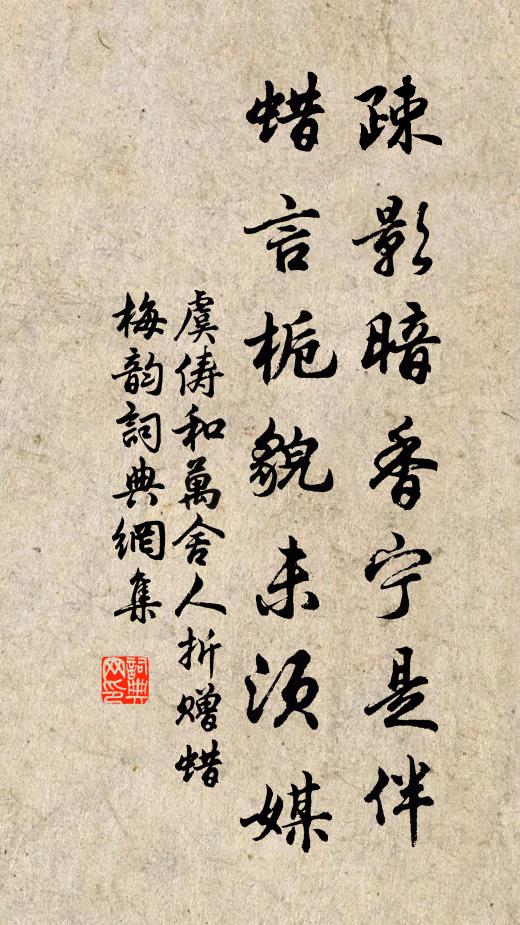 疎影暗香宁是伴
蜡言栀貌未须媒
虞俦和萬舍人折赠蜡
梅韵詞典網集
詞典
网印